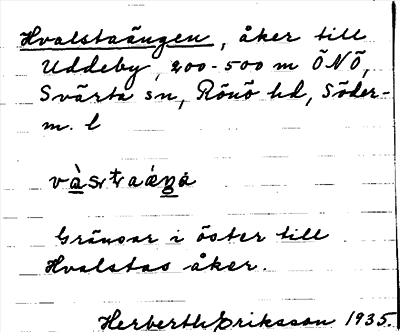 Hvalstaängen, åker till
Uddeby, 200-500 m ÖNÖ,
Svärta sn, Rönö hd, Söder-
m. l
Gränsar i öster till
Hvalstas åker.
Herbert Eriksson 1935.